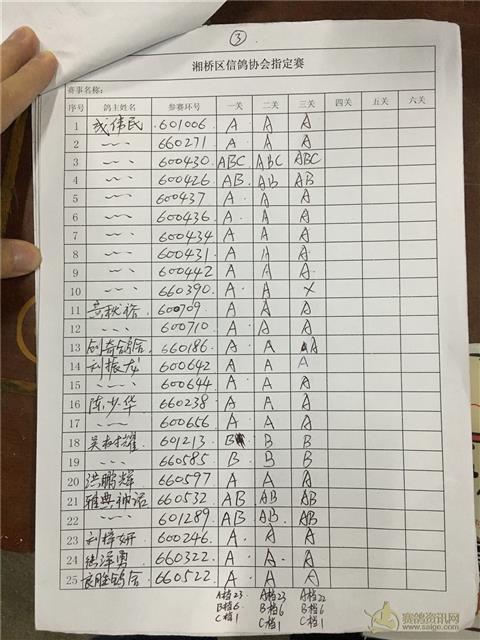 ③
湘桥区信鸽协会指定赛
赛事名称:
序号 鸽主姓名 参赛环号 一关 二关 三关 四关 五关 六关
1 伟民 601006 A A A
2 〃 660271 A A A
3 〃 600430 ABC ABC ABC
4 〃 600426 AB AB AB
5 〃 600437 A A A
6 〃 600436 A A A
7 〃 600434 A A A
8 〃 600431 A A A
9 〃 600442 A A A
10 〃 660390 A A X
11 黄秋裕 600709 A A A
12 〃 600710 A A A
13 剑奇鸽舍 660186 A A A
14 刘振龙 600642 A A A
15 〃 600644 A A A
16 陈少华 660238 A A A
17 〃 600656 A A A
18 吴树耀 601213 B B B
19 〃 660585 B B B
20 洪鹏辉 660597 A A A
21 雅典神话 660532 AB AB AB
22 〃 601289 AB AB AB
23 刘梓妍 600246 A A A
24 泽勇 660322 A A A
25 良胜鸽舍 660522 A A A
A档23 A档23 A档22
B档6 B档6 B档6
C档1 C档1 C档1
赛鸽资讯网
www.saige.com